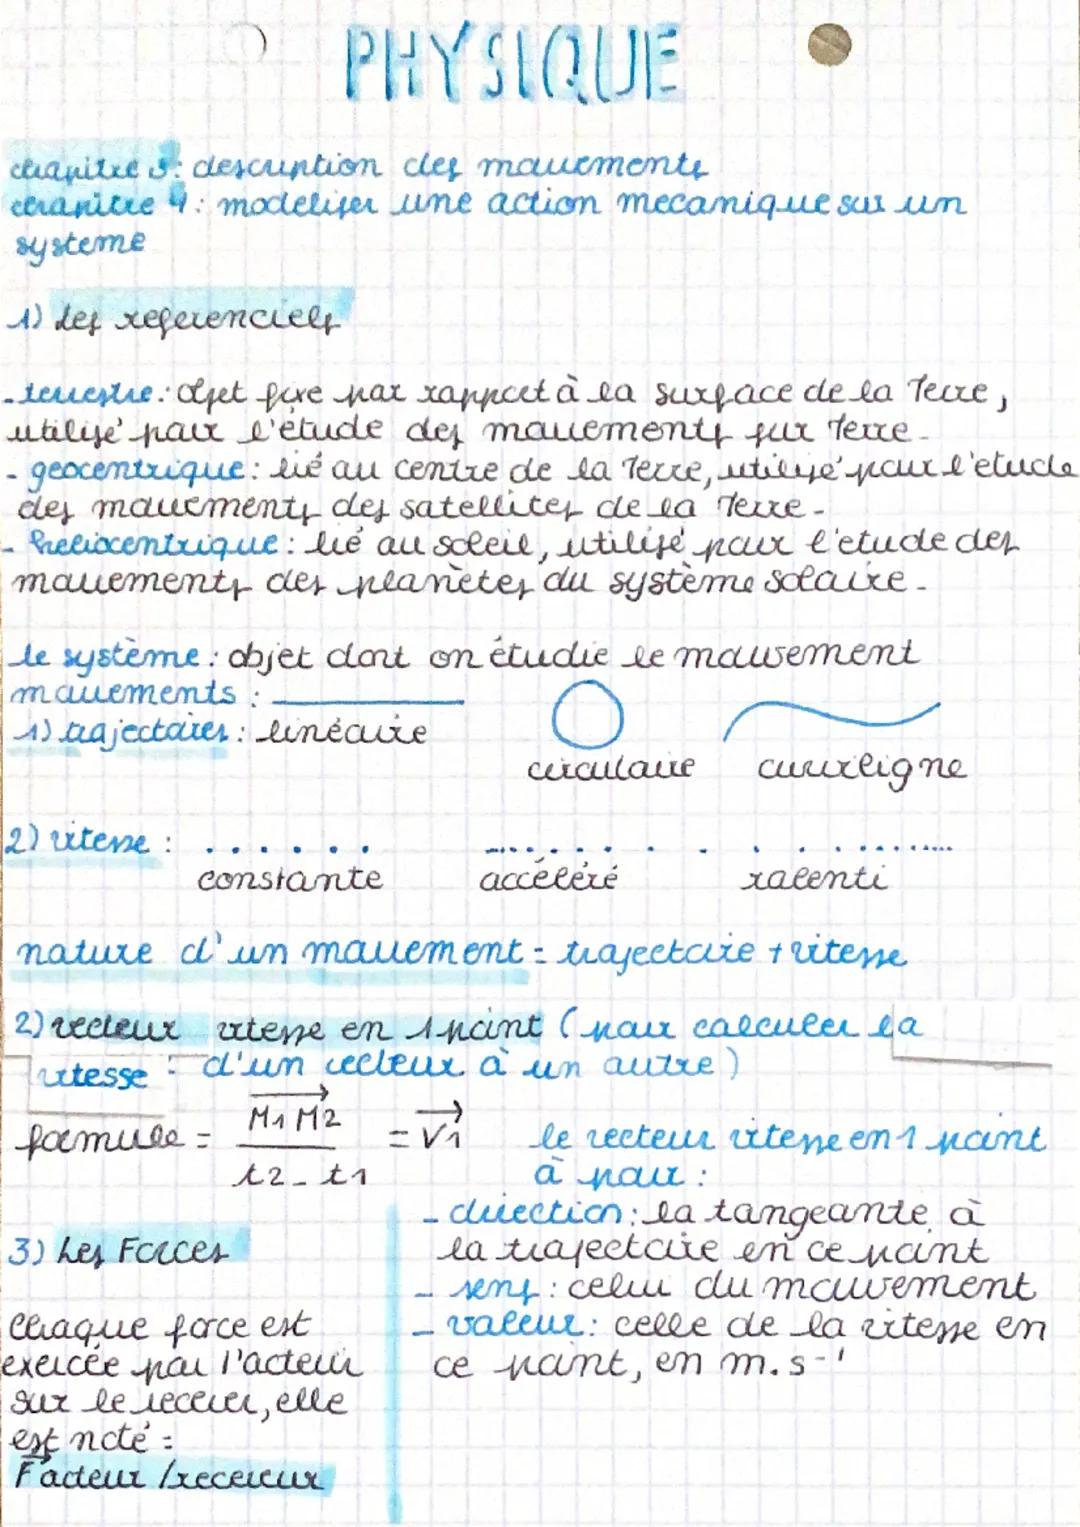 PHYSIQUE
chapitre 3: description des mouvements
chapitre 4: modeliser une action mecanique sur un
systeme
1) les referenciels
- terrestre: objet fixe par rapport à la surface de la Terre,
utilisé pour l'étude des mouvements sur Terre.
- geocentrique: lié au centre de la Terre, utilisé pour l'etude
des mouvements des satellites de la Terre.
- heliocentrique: lié au soleil, utilisé pour l'etude des
mouvements des planètes du système solaire.
le système: objet dont on étudie le mouvement
mouvements:
1) trajectoires: linéaire
circulaire curviligne
2) vitesse:
constante accéléré ralenti
nature d'un mouvement = trajectoire + vitesse
2) vecteur vitesse en 1 point (pour calculer la
vitesse d'un vecteur à un autre)
formule = M1 M2 / t2 - t1 = V1
le vecteur vitesse en 1 point
à pour:
- direction: la tangeante à
la trajectoire en ce point
- sens: celui du mouvement
- valeur: celle de la vitesse en
ce point, en m.s-1
3) Les Forces
Chaque force est
exercée par l'acteur
sur le receveur, elle
est noté =
F acteur / receveur